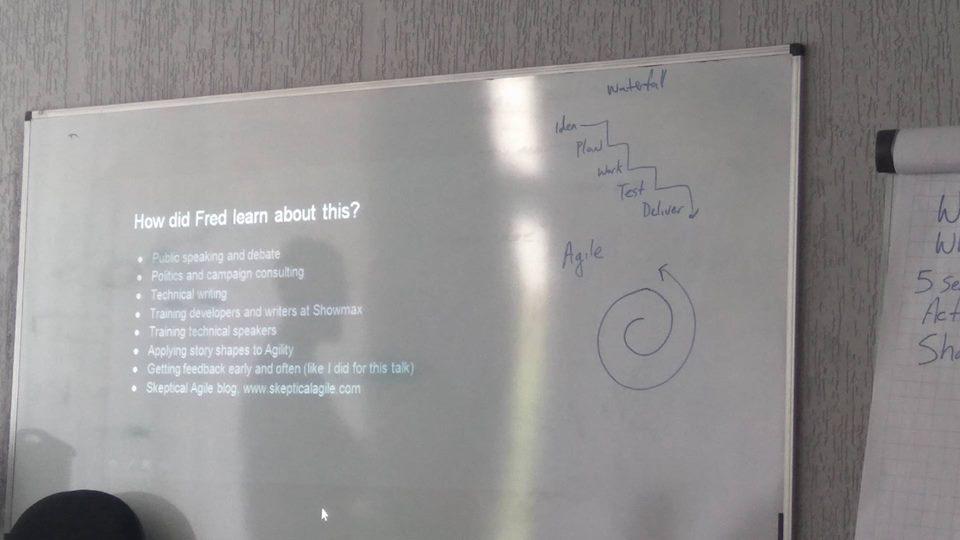 How did Fred learn about this?
• Public speaking and debate
• Politics and campaign consulting
• Technical writing
• Training developers and writers at Showmax
• Training technical speakers
• Applying story shapes to Agility
• Getting feedback early and often (like I did for this talk)
• Skeptical Agile blog, www.skepticalagile.com
Waterfall
Idea
Plan
Work
Test
Deliver
Agile
5